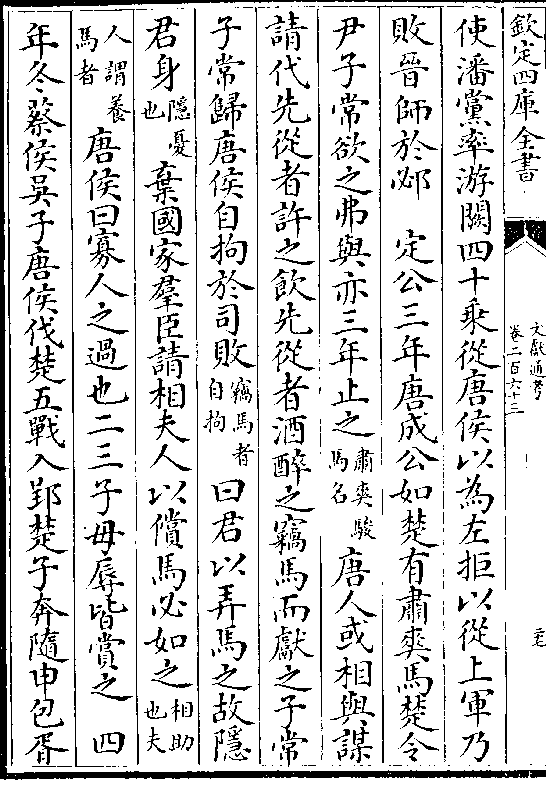 欽定四庫全書
文獻通考
卷二百六十三
使潘黨率游闕四十乘從唐侯以為左拒以從上軍乃
敗晉師於邲　定公三年唐成公如楚有肅爽馬楚令
尹子常欲之弗與亦三年止之肅爽駿馬名唐人或相與謀
請代先從者許之飲先從者酒醉之竊馬而獻之子常
子常歸唐侯自拘於司敗竊馬者自拘曰君以弄馬之故隱
君身隱憂也棄國家羣臣請相夫人以償馬必如之相助也夫
人謂養馬者唐侯曰寡人之過也二三子毋辱皆賞之　四
年冬蔡侯吳子唐侯伐楚五戰入郢楚子奔隨申包胥